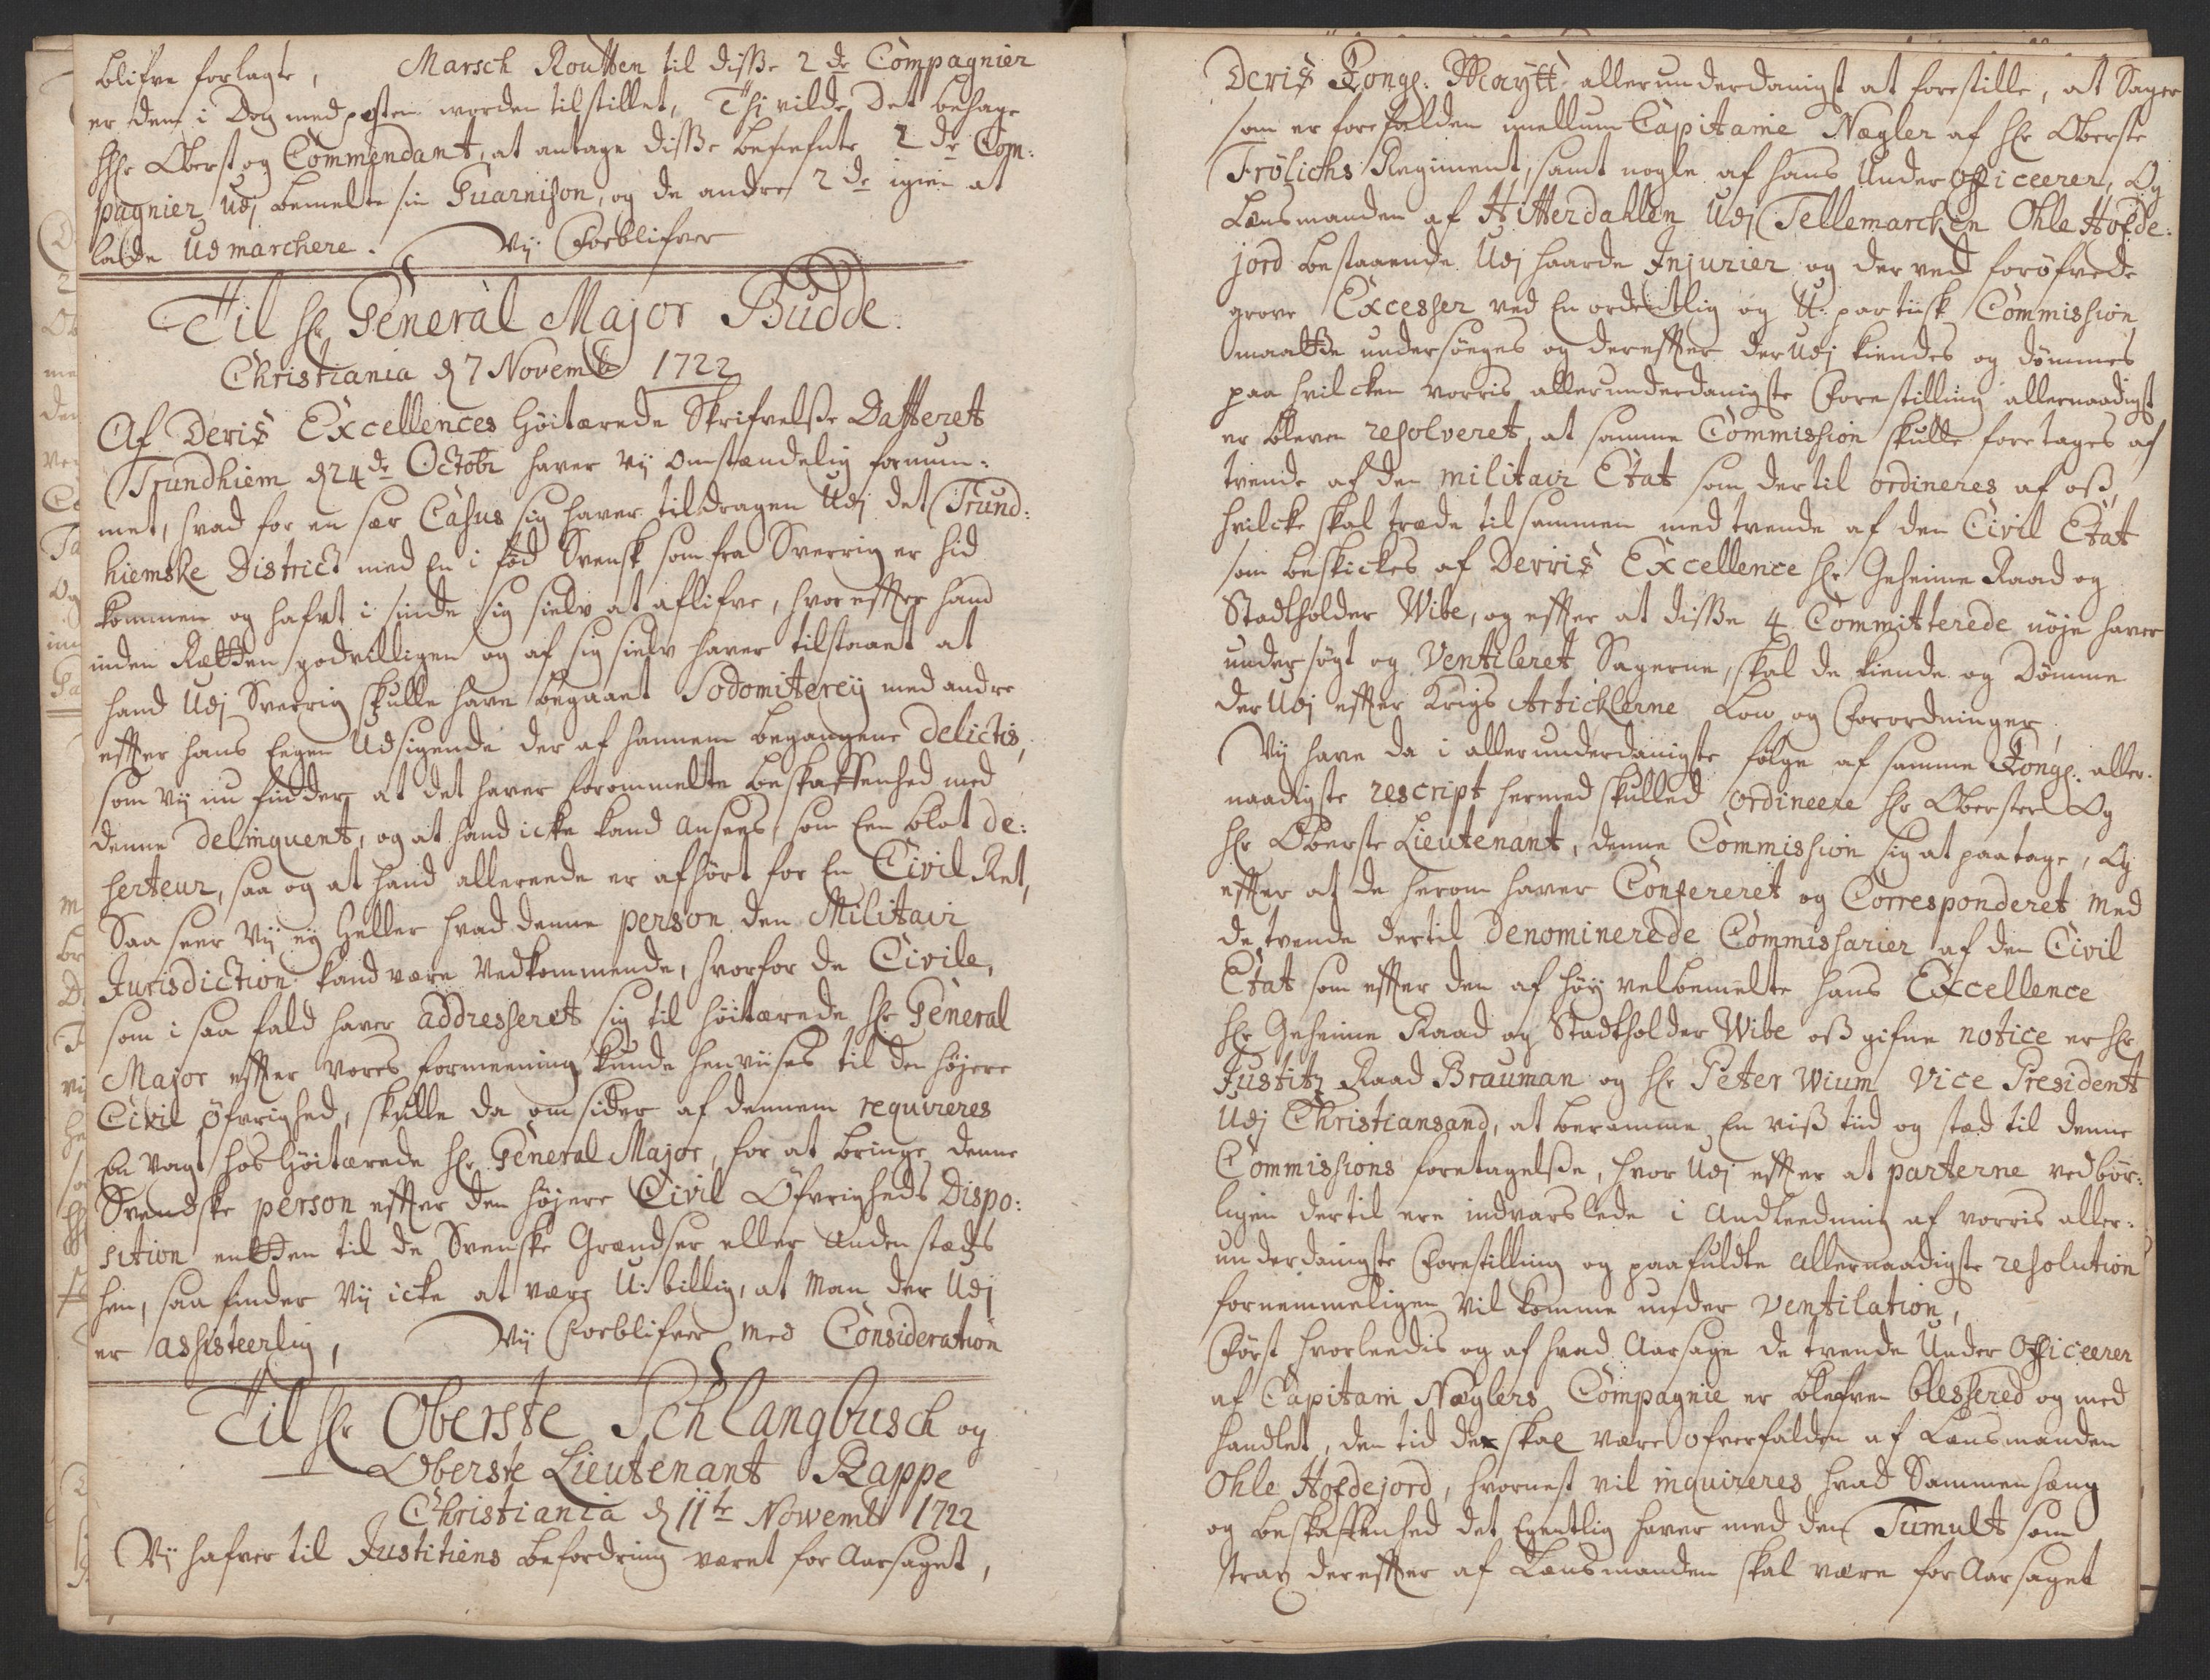 blifve forlagte, Marsch Routten til disse 2de Compagnier
er dem i Dag med posten worden tilstillet, Thi vilde det behage
HHr Oberst og Commendant, at antage disse 2de Com:
pagnier udj bemelte sin Guarnison, og de andre 2de igien at
lade udmarchere. Vij Forblifver
Til Hr General Major Budde.
Christiania d 7 Novemb 1722
Af Deris Excellences Höitærede Skrifvelsse Datteret
Trundhiem d 24de Octobr haver vij omstændelig fornum:
met, hvad for en sær Casus sig haver tildragen udj det Trund:
hiemske District med En i fød Svensk som fra Sverrig er hid
kommen og hafvt i sinde sig sielv at aflifve, hvor effter hand
inden Rætten godvilligen og af sig sielv haver tilstaaet at
hand udj Sverrig skulle have begaaet Sodomitereij med andre
effter hans Eegen udsigende der af hannem begangene delictis,
som vij nu finder at det haver forommelte beskaffenhed med
denne delinquent, og at hand icke kand ansees som Een blot de:
serteur, saa og at hand allereede er afhört for En Civil Ret,
Saa seer vij ej heller hvad denne person den Militair
Jurisdiction kand være vedkommende, hvorfor de Civile,
som i saa fald haver addresseret sig til höitærede Hr General
Major effter vores formeening kunde henviises til den höjere
Civil Öfvrighed, skulle da omsider af dennem requireres
En vagt hos Höitærede Hr General Major, for at bringe denne
Svendske person effter den höjere Civil Öfvrigheds Dispo:
sition entten til de Svenske Grændser eller anden stæds
hen, saa finder vij icke at være U:billig, at Man der udj
er assisteerlig, Vij Forblifver med Consideration
Til Hr Oberste Schlangbusch og
Oberste Lieutenant Rappe
Christiania d 11te Novemb 1722
Vij hafver til Justitiens befordring været for Aarsaget,
Deris Kongl: Maytt allerunderdanigst at forestille, at Sager
som er forefalden mellum Capitaine Nægler af Hr Oberste
Frölichs Regiment, samt nogle af hans Under Officeerer, og
Lænsmanden af Hitterdahlen udj Tellemarcken Ohle Hofde:
jord bestaaende udj haarde Injurier og der ved foröfvede
grove Excesser ved En ordentlig og U:partiisk Commission
maatte undersöges og dereffter derudj kiendes og dömmes
paa hvilcken vorris allerunderdanigste Forestilling allernaadigst
er bleven resolveret, at samme Commission skulle foretages af
tvende af den militair Etat som dertil ordineres af oss,
hvilcke skal træde tilsammen med tvende af den Civil Etat
som beskickes af Derris Excellence Hr Geheime Raad og
Stadtholder Wibe, og effter at disse 4 Committerede nöje haver
undersögt og Ventileret Sagerne, skal de kiende og Dömme
der udj effter Krigs Articklerne Low og Forordninger
Vij have da i allerunderdanigste fölge af samme Kongl: aller-
naadigste rescript hermed skulled ordineere Hr Oberster og
Hr Oberste Lieutenant, denne Commission sig at paatage, og
effter at de herom haver Confereret og Corresponderet med
de tvende dertil denominerede Commissarier af den Civil
Etat som effter den af höy velbemelte hans Excellence
Hr Geheime Raad og Stadtholder Wibe oss gifne notice er Hr
Justitz Raad Brauman og Hr Peter Wium Vice President
udj Christiansand, at beramme En viss tiid og stæd til denne
Commissions foretagelsse, hvor udj effter at parterne vedbör:
ligen dertil ere indvarslede i Andleedning af vorris aller:
underdanigste Forestilling og paafuldte allernaadigste resolution
fornemmeligen vil komme under ventilation,
Först hvorleedis og af hvad Aarsage de tvende Under Officeerer
af Capitain Næglers Compagnie er blefven blessered og med
handlet, den tid de skal være ofverfalden af Lænsmanden
Ohle Hofdejord, hvornest vil inquireres hvad Sammenhæng
og beskaffenhed det Egentlig haver med den Tumult som
strax dereffter af Lænsmanden skal være for Aarsaget